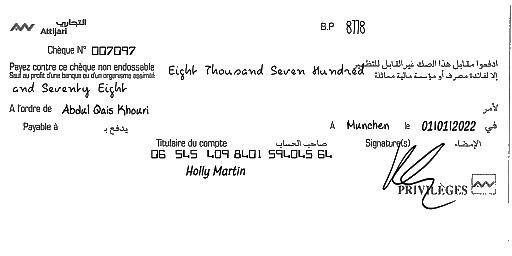 التجاري
Attijari
B.P 8778
Chèque N° 007097
Payez contre ce chèque non endossable
Sauf au profit d'une banque ou d'un organisme assimilé
Eight Thousand Seven Hundred
ادفعوا مقابل هذا الصك غير القابل للتظهير
إلا لفائدة مصرف أو مؤسسة مالية مماثلة
and Seventy Eight
A l'ordre de Abdul Qais Khouri لأمر
Payable à يدفع بـ A Munchen le 01/01/2022 في
Titulaire du compte صاحب الحساب Signature(s) الإمضاء
06 545 409 8401 594045 64
Holly Martin
PRIVILÈGES